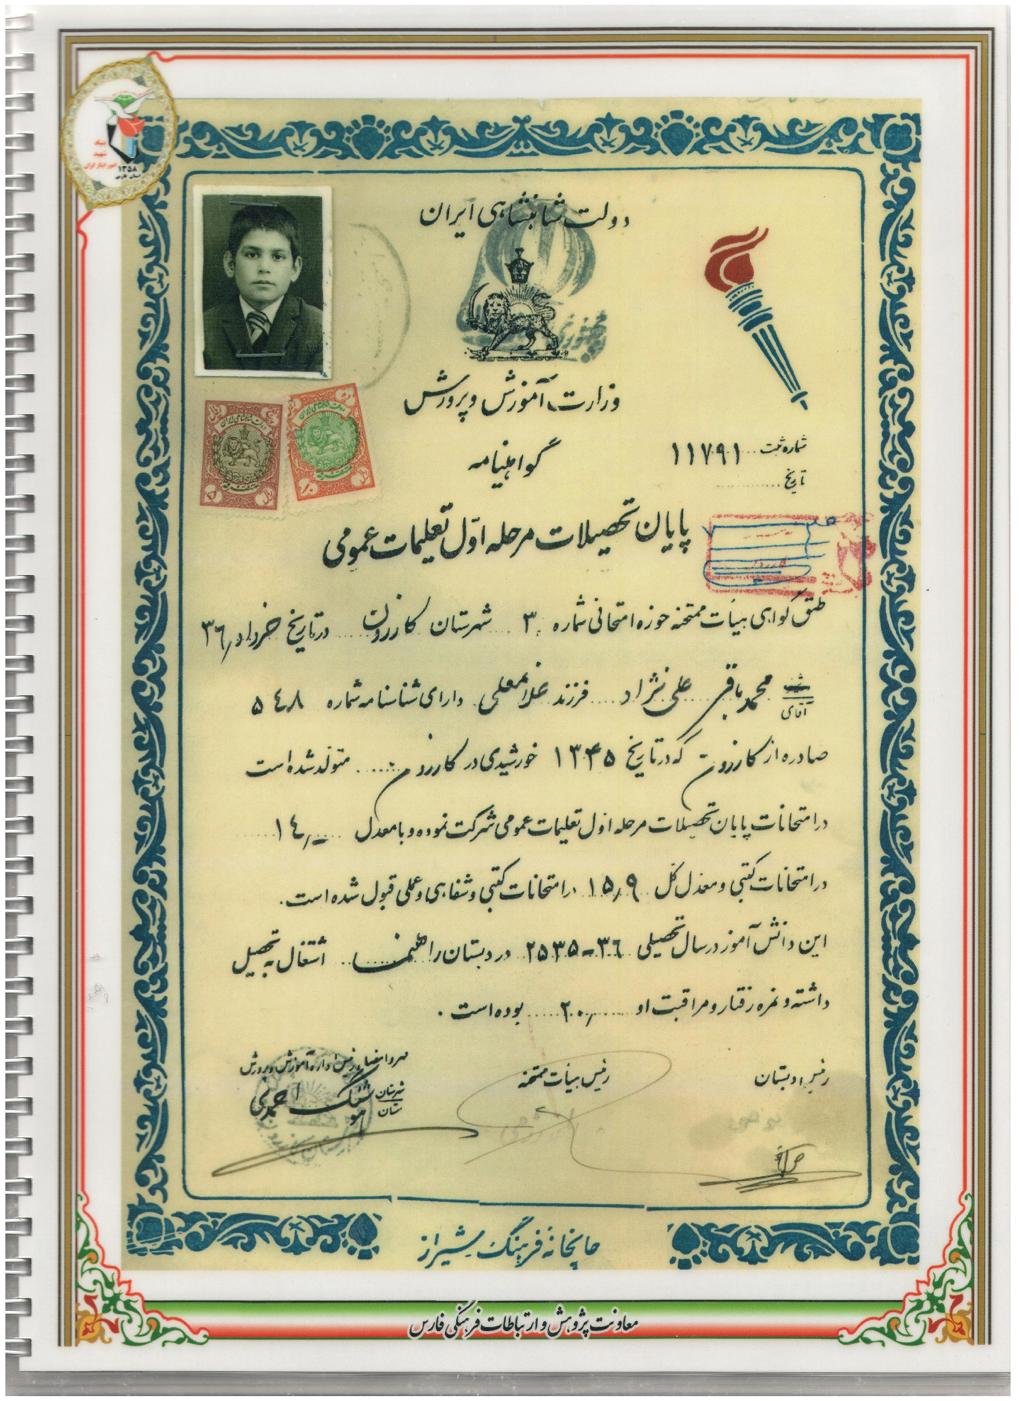 دولت شاهنشاهی ایران
جمهوری
وزارت آموزش و پرورش
گواهینامه
شماره ثبت ۱۱۷۹۱
تاریخ
پایان تحصیلات مرحله اول تعلیمات عمومی
طبق گواهی هیأت ممتحنه حوزه امتحانی شماره ۳ شهرستان کازرون در تاریخ خرداد ۳۶
آقای محمد باقر علی نژاد فرزند غلامعلی دارای شناسنامه شماره ۵۴۸
صادره از کازرون که در تاریخ ۱۳۴۵ خورشیدی در کازرون متولد شده است
در امتحانات پایان تحصیلات مرحله اول تعلیمات عمومی شرکت نموده و با معدل ۱۴٫-
در امتحانات کتبی و معدل کل ۱۵٫۹ در امتحانات کتبی و شفاهی و عملی قبول شده است.
این دانش آموز در سال تحصیلی ۳۶-۲۵۳۵ در دبستان راهنما اشتغال به تحصیل
داشته و نمره رفتار و مراقبت او ۲۰٫ بوده است.
رئیس دبستان
رئیس هیأت ممتحنه
مهر و امضاء رئیس اداره آموزش و پرورش
شهرستان
هوشنگ احمدی
چاپخانه فرهنگ شیراز
معاونت پژوهش و ارتباطات فرهنگی فارس
بنیاد
شهید
۱۳۵۸